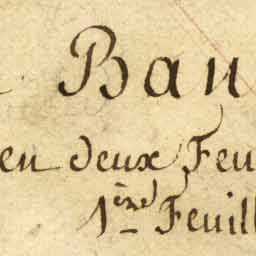 Ban
en deux Feu
1ère Feuill